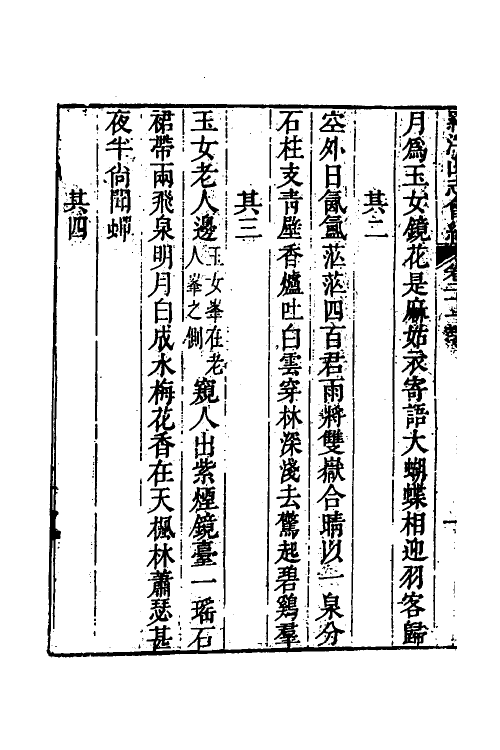 月爲玉女鏡花是麻姑衣寄語大蝴蝶相迎羽客歸
其二
空外日氤氳茫茫四百君雨將雙嶽合晴以一泉分
石柱支靑壁香爐吐白雲穿林深淺去驚起碧鷄羣
其三
玉女老人邊玉女峯在老人峯之側窺人出紫煙鏡臺一瑤石
裙帶兩飛泉明月白成水梅花香在天楓林蕭瑟甚
夜半尙聞蟬
其四